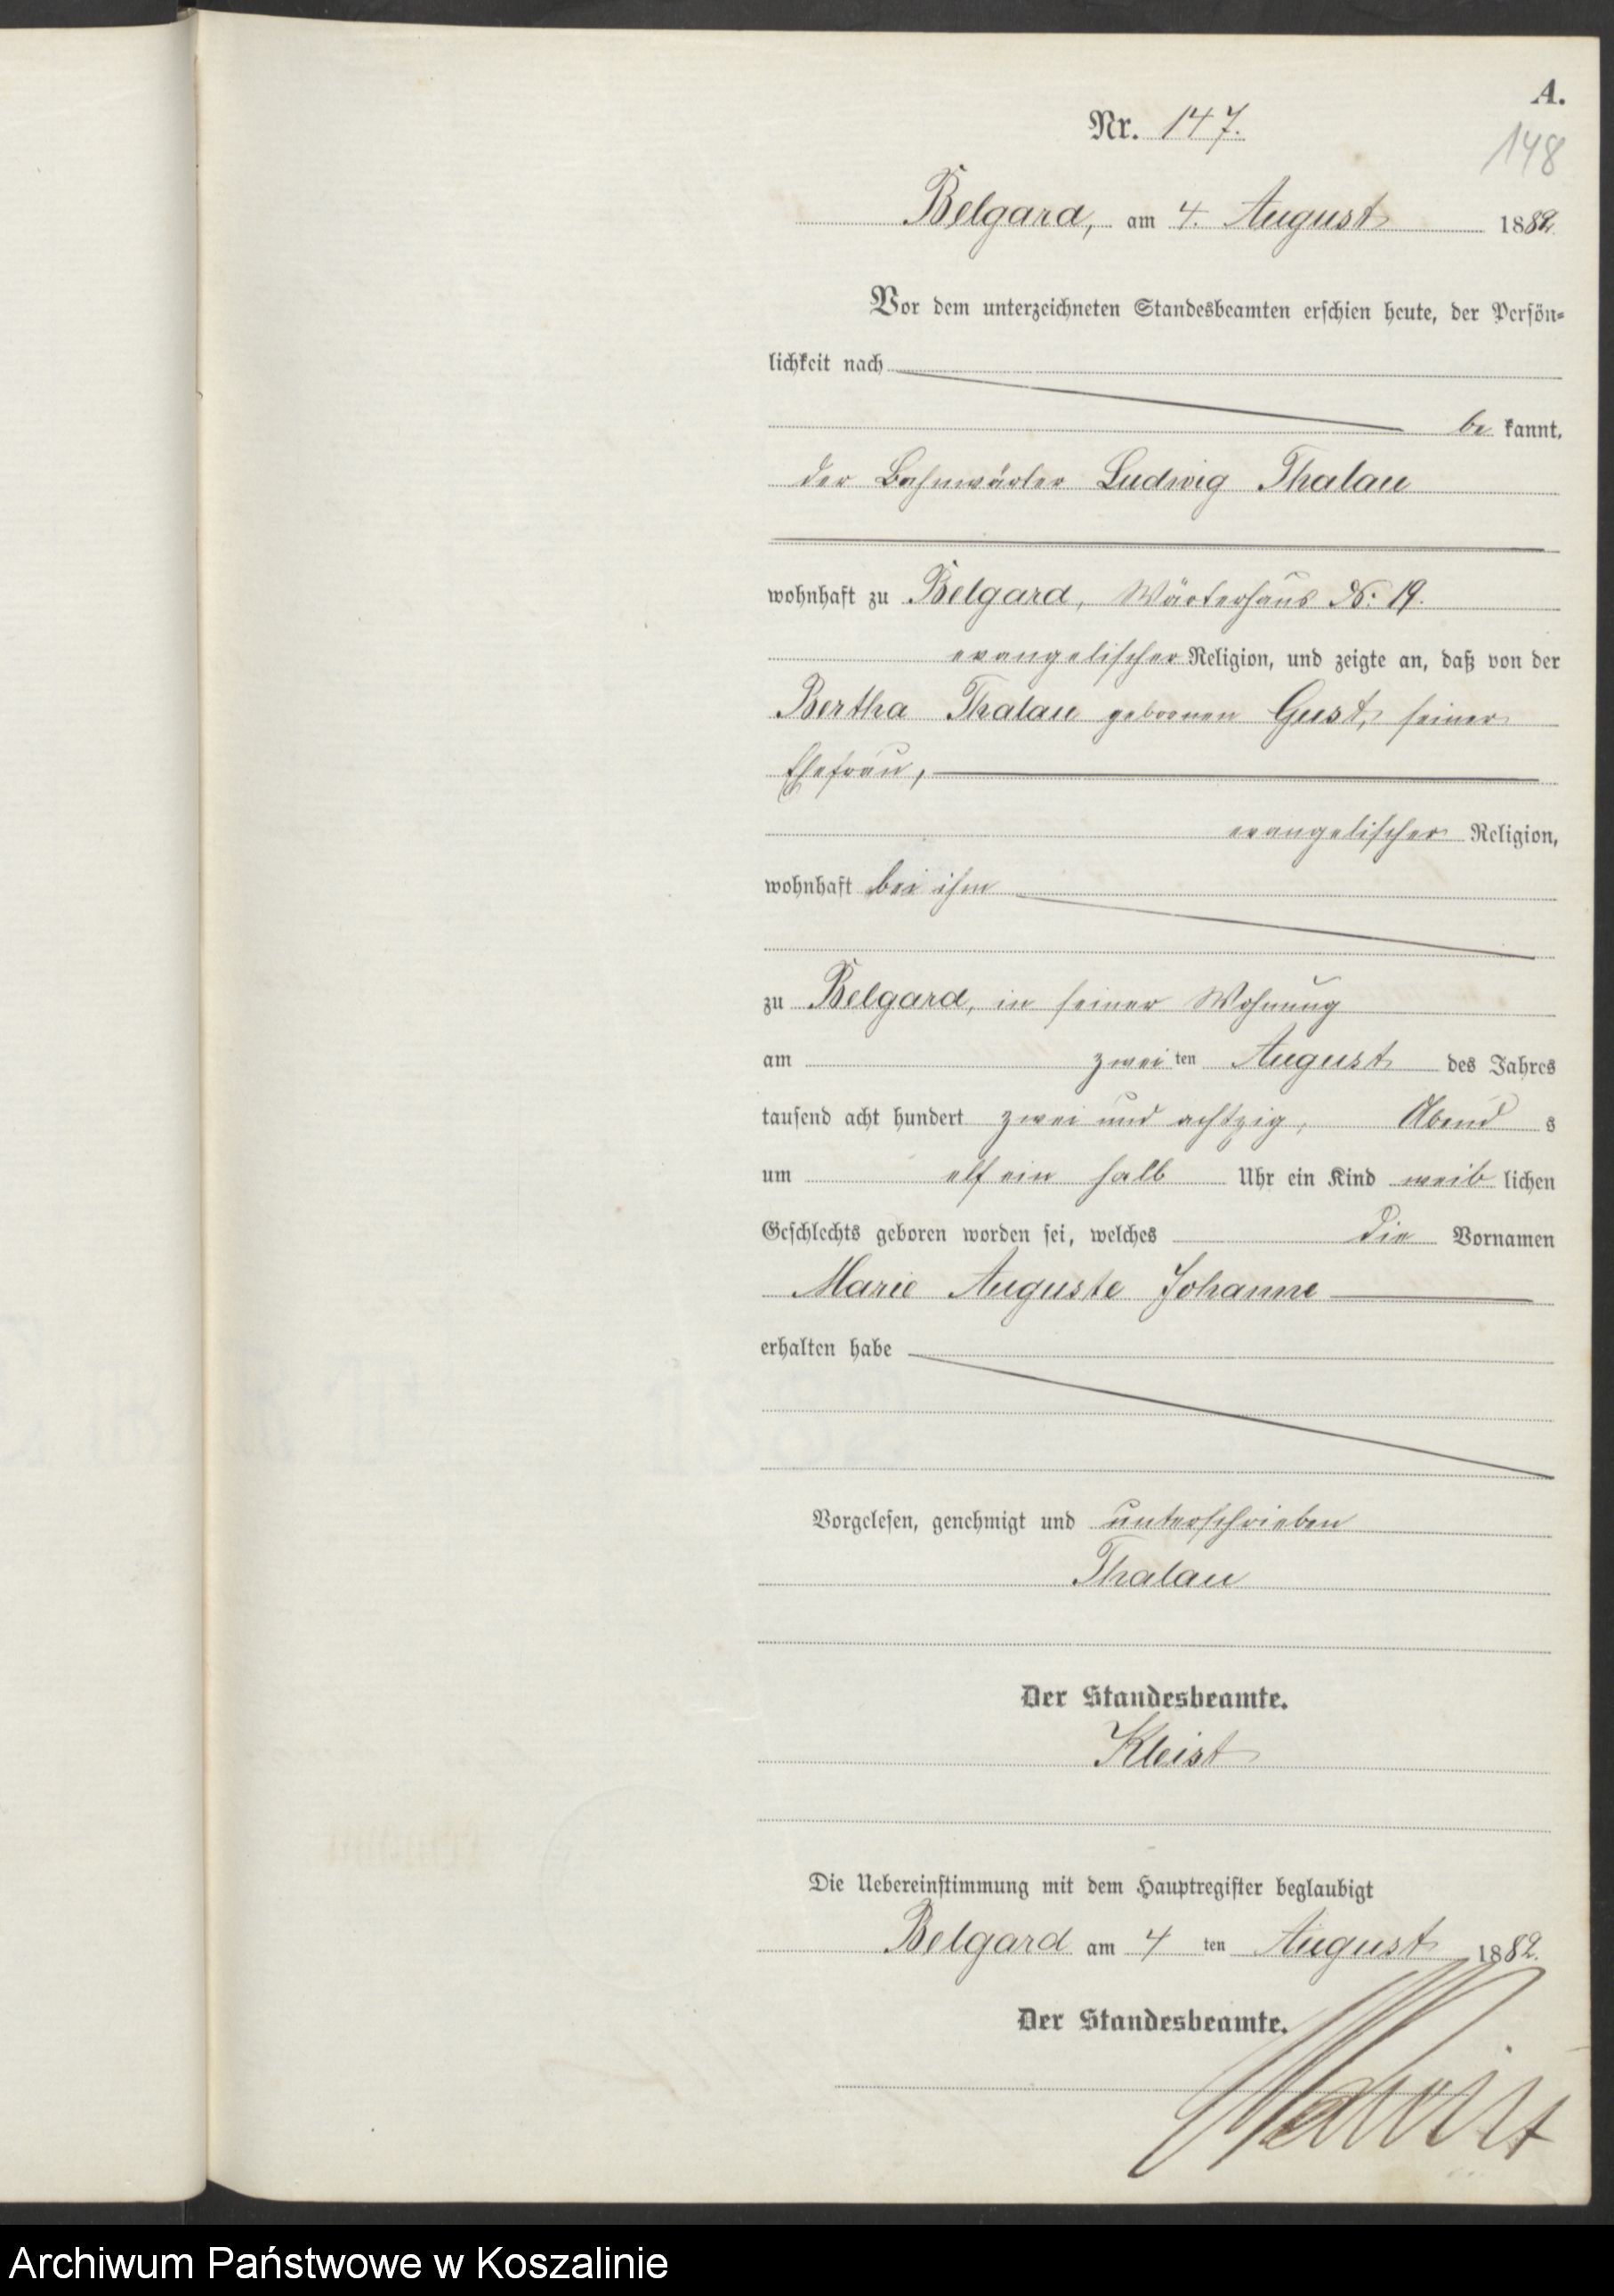 A.
Nr. 147.
148
Belgard, am 4. August 1882.
Vor dem unterzeichneten Standesbeamten erschien heute, der Persön-
lichkeit nach
be kannt,
der Bahnwärter Ludwig Thalau
wohnhaft zu Belgard, Wärterhaus No: 19.
evangelischer Religion, und zeigte an, daß von der
Bertha Thalau geborenen Gust, seiner
Ehefrau,
evangelischer Religion,
wohnhaft bei ihm
zu Belgard, in seiner Wohnung
am zwei ten August des Jahres
tausend acht hundert zwei und achtzig, Abend s
um elf ein halb Uhr ein Kind weib lichen
Geschlechts geboren worden sei, welches die Vornamen
Marie Auguste Johanne
erhalten habe
Vorgelesen, genehmigt und unterschrieben
Thalau
Der Standesbeamte.
Kleist
Die Uebereinstimmung mit dem Hauptregister beglaubigt
Belgard am 4 ten August 1882.
Der Standesbeamte.
Kleist
Archiwum Państwowe w Koszalinie